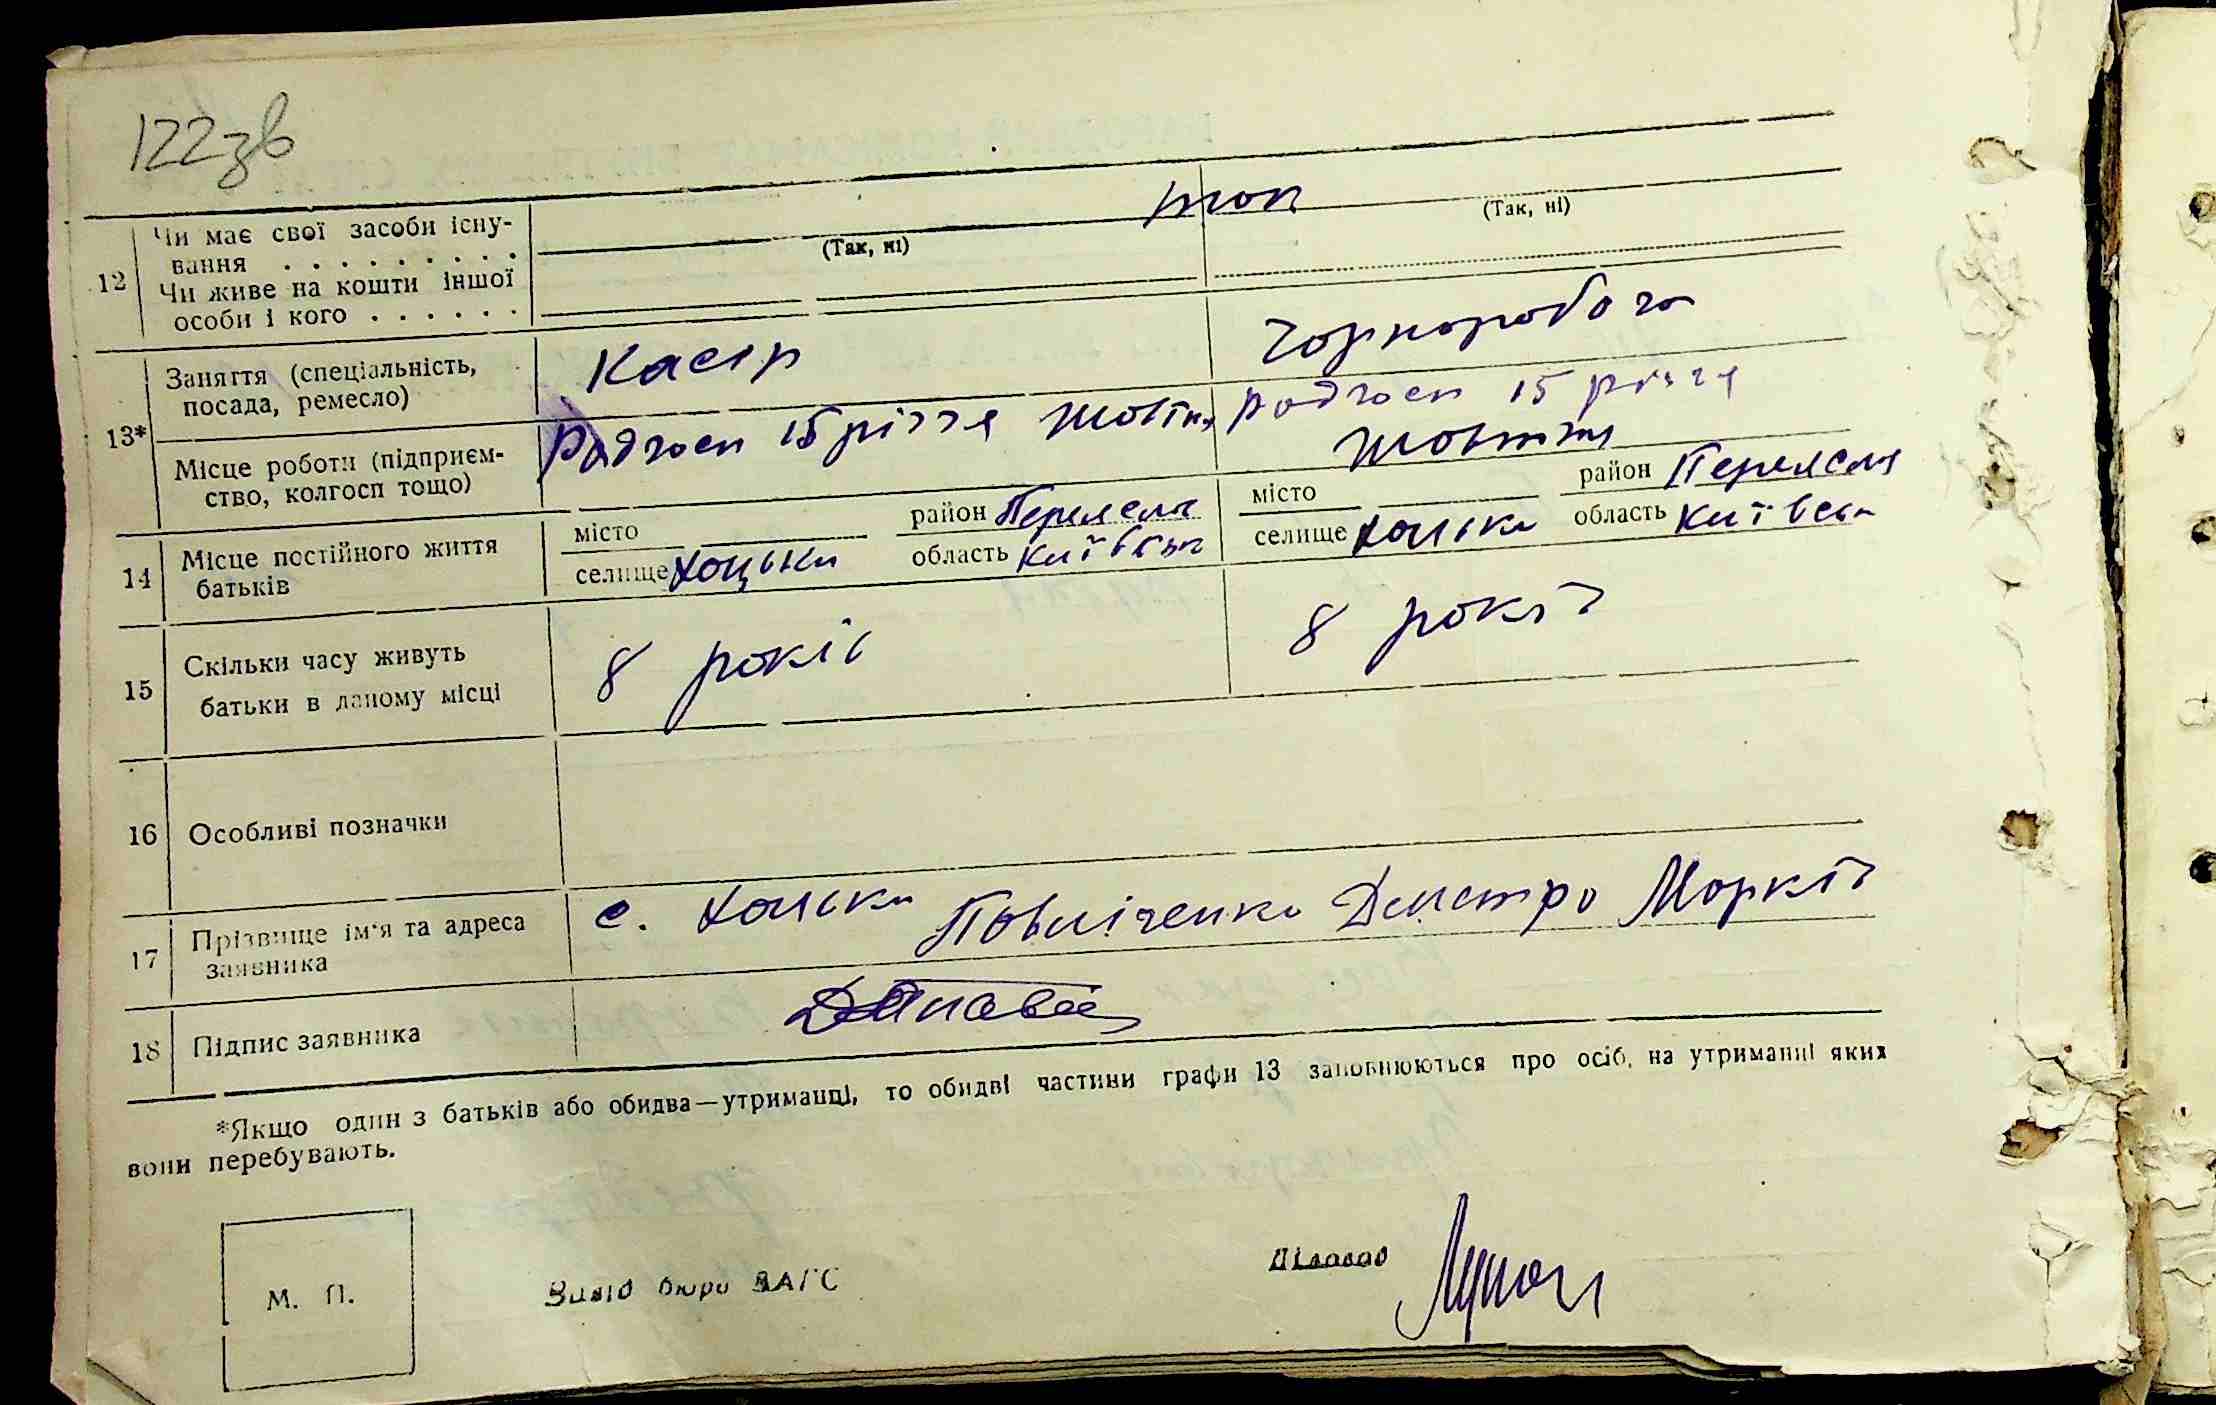 122зв
12 Чи має свої засоби існу-
вання . . . . . . . . .
(Так, ні) так (Так, ні)
Чи живе на кошти іншої
особи і кого . . . . . .
13* Заняття (спеціальність,
посада, ремесло) Касір Чорноробоча
Місце роботи (підприєм-
ство, колгосп тощо) Радгосп 15 річчя Жовтня Радгосп 15 річчя
Жовтня
14 Місце постійного життя
батьків
місто район Переясла місто район Переясла
селище Хоцьки область Київськ селище Хоцьки область Київськ
15 Скільки часу живуть
батьки в даному місці 8 років 8 років
16 Особливі позначки
17 Прізвище ім'я та адреса
заявника с. Хоцьки Дмитро Марків
18 Підпис заявника
*Якщо один з батьків або обидва—утриманці, то обидві частини графи 13 заповнюються про осіб, на утриманні яких
вони перебувають.
М. П.
Завід бюро ЗАГС Діловод